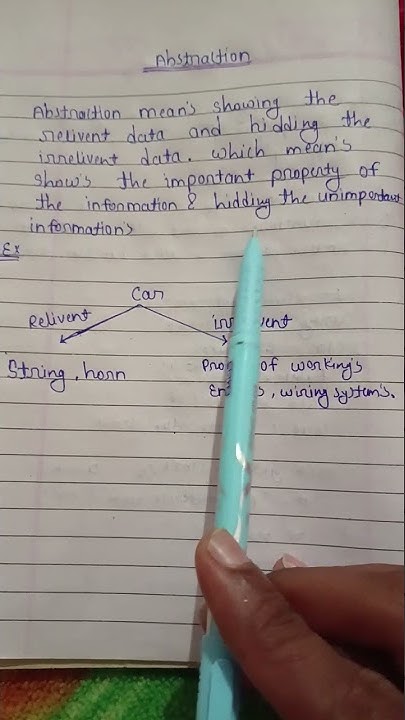 Abstraction
Abstraction mean's showing the
relivent data and hidding the
irrelivent data. which mean's
show's the important property of
the information & hidding the unimportant
information's
Ex
Car
Relivent
String, horn of working's
, wiring system's.